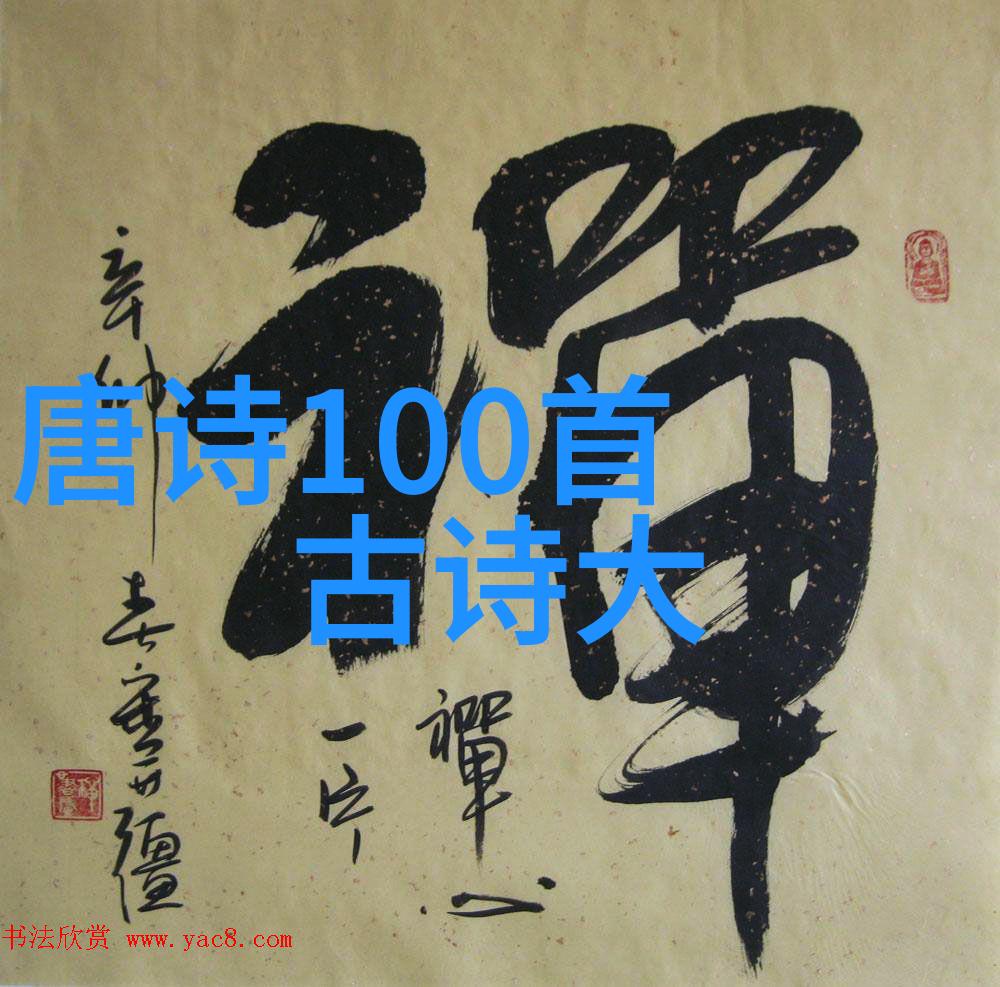 禪
唐诗100首
古诗大
禪心
一片
春
书法欣赏 www.yac8.com